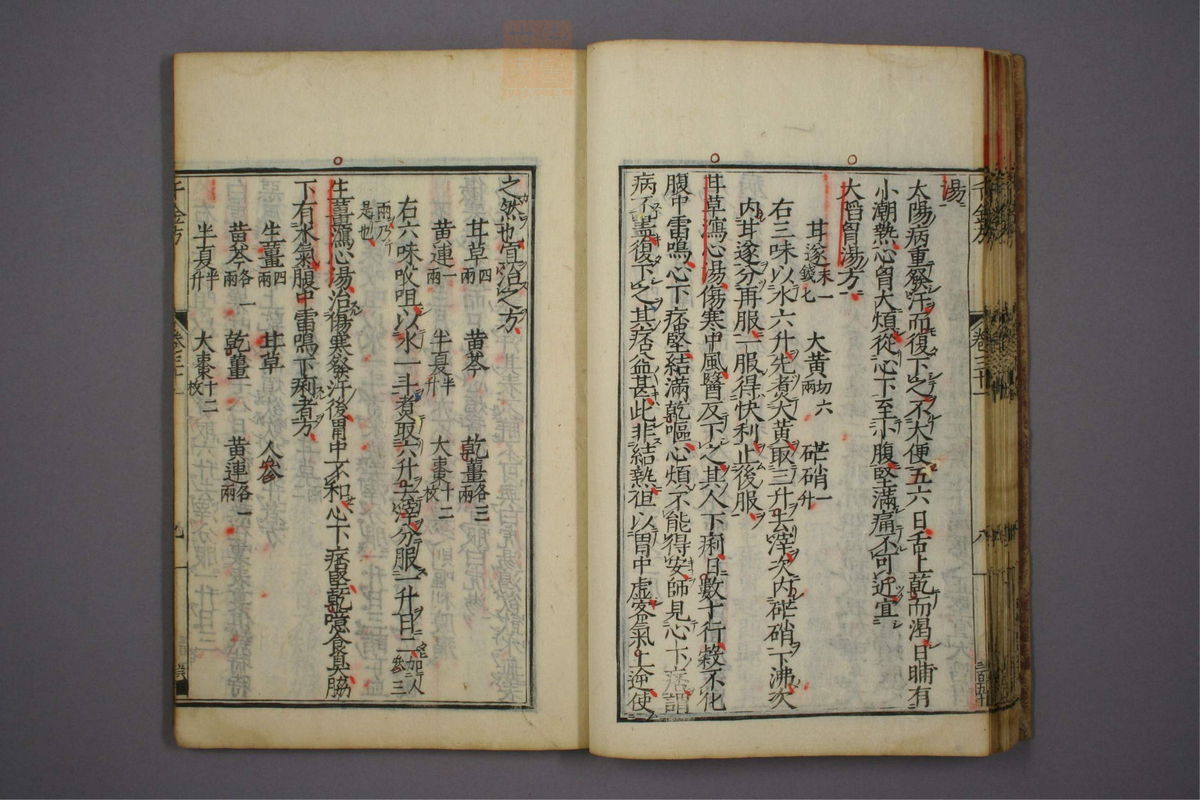 湯
太陽病重發汗而復下之不大便五六日舌上乾而渴日晡有
小潮熱心胷大煩從心下至小腹堅滿痛不可近宜
大陷胷湯方
甘遂末一錢七 大黃切六兩 芒硝一升
右三味以水六升先煮大黃取三升去滓次内芒硝下沸次
内甘遂分再服一服得快利止後服
甘草瀉心湯傷寒中風醫反下之其人下痢日數十行穀不化
腹中雷鳴心下痞堅結滿乾嘔心煩不能得安師見心下痞謂
病不盡復下之其痞益甚此非結熱但以胃中虛客氣上逆使
之然也宜治之方
甘草四兩 黃芩 乾薑各三兩
黃連一兩 半夏半升 大棗十二枚
右六味㕮咀以水一斗煮取六升去滓分服一升日三 加人參三兩乃是也
生薑瀉心湯治傷寒發汗後胃中不和心下痞堅乾噫食臭脇
下有水氣腹中雷鳴下痢者方
生薑四兩 甘草 人參
黃芩各一兩 乾薑 黃連各一兩
半夏半升 大棗十二枚
千金方 卷三十一 九